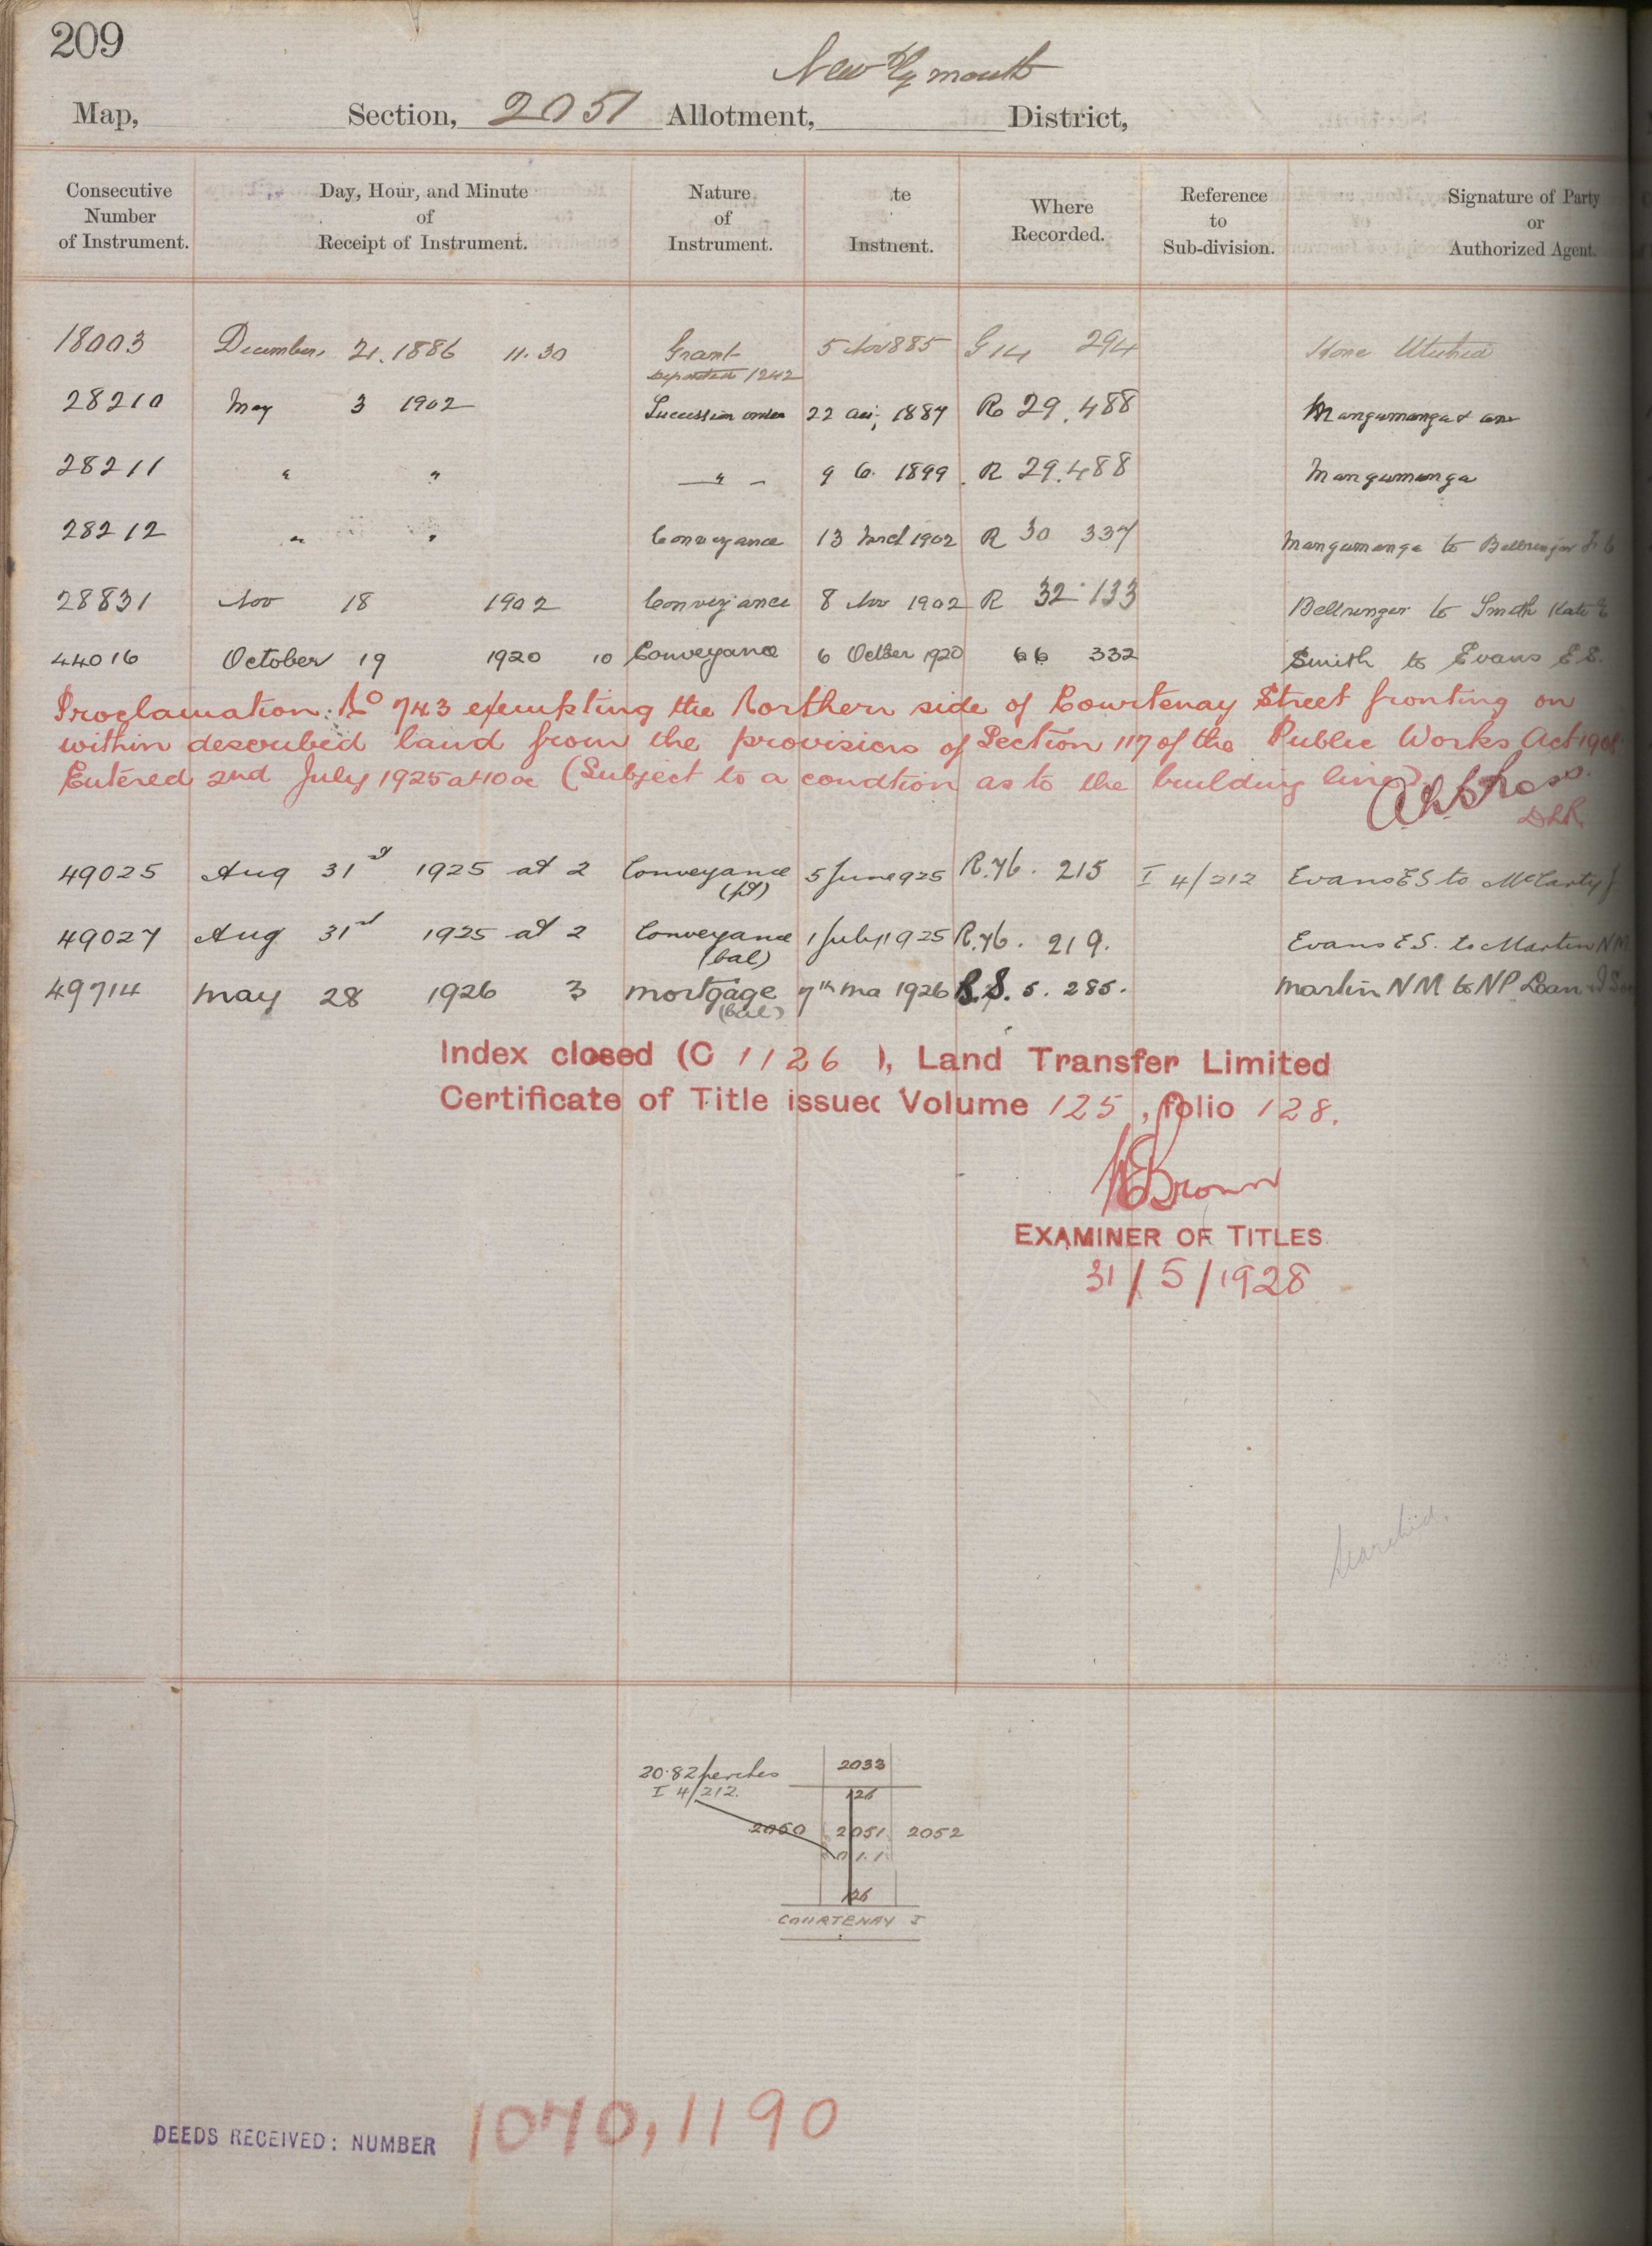 209
New Plymouth
Map, Section, 2051 Allotment, District,
Consecutive Number of Instrument. Day, Hour, and Minute of Receipt of Instrument. Nature of Instrument. te Instnent. Where Recorded. Reference to Sub-division. Signature of Party or Authorized Agent.
18003 December 21. 1886 11.30 Grant 5 Nov 1885 G 14 294 Hone
1242
28210 May 3 1902 Succession order 22 1887 R 29. 488 Mangumanga &
28211 " " " 9 6. 1899 R 29. 488 Mangumanga
28212 " " Conveyance 13 March 1902 R 30 337 Mangumanga to Bellringer
28831 Nov 18 1902 Conveyance 8 Nov 1902 R 32 133 Bellringer to Smith Kate E
44016 October 19 1920 10 Conveyance 6 October 1920 66 332 Smith to Evans E.S.
Proclamation: No 743 exempting the Northern side of Courtenay Street fronting on
within described land from the provisions of Section 117 of the Public Works Act 1908
Entered 2nd July 1925 at 10 oc (Subject to a condtion as to the building line).
DLR
49025 Aug 31st 1925 at 2 Conveyance 5 June 1925 R.76. 215 I 4/212 Evans E S to McCarty J
(pt)
49027 Aug 31st 1925 at 2 Conveyance 1 July 1925 R.76. 219. Evans E.S. to Martin NM
(bal)
49714 May 28 1926 3 Mortgage 7th Ma 1926 R.S. 5. 285. Martin NM to NP Loan
(bal)
Index closed (C 1126 ), Land Transfer Limited
Certificate of Title issued Volume 125, folio 128.
Brown
EXAMINER OF TITLES
31/5/1928
Searched.
20.82 perches 2033
I 4/212. 126
2050 2051 2052
0 1. 1
126
COURTENAY S
DEEDS RECEIVED: NUMBER 1070, 1190